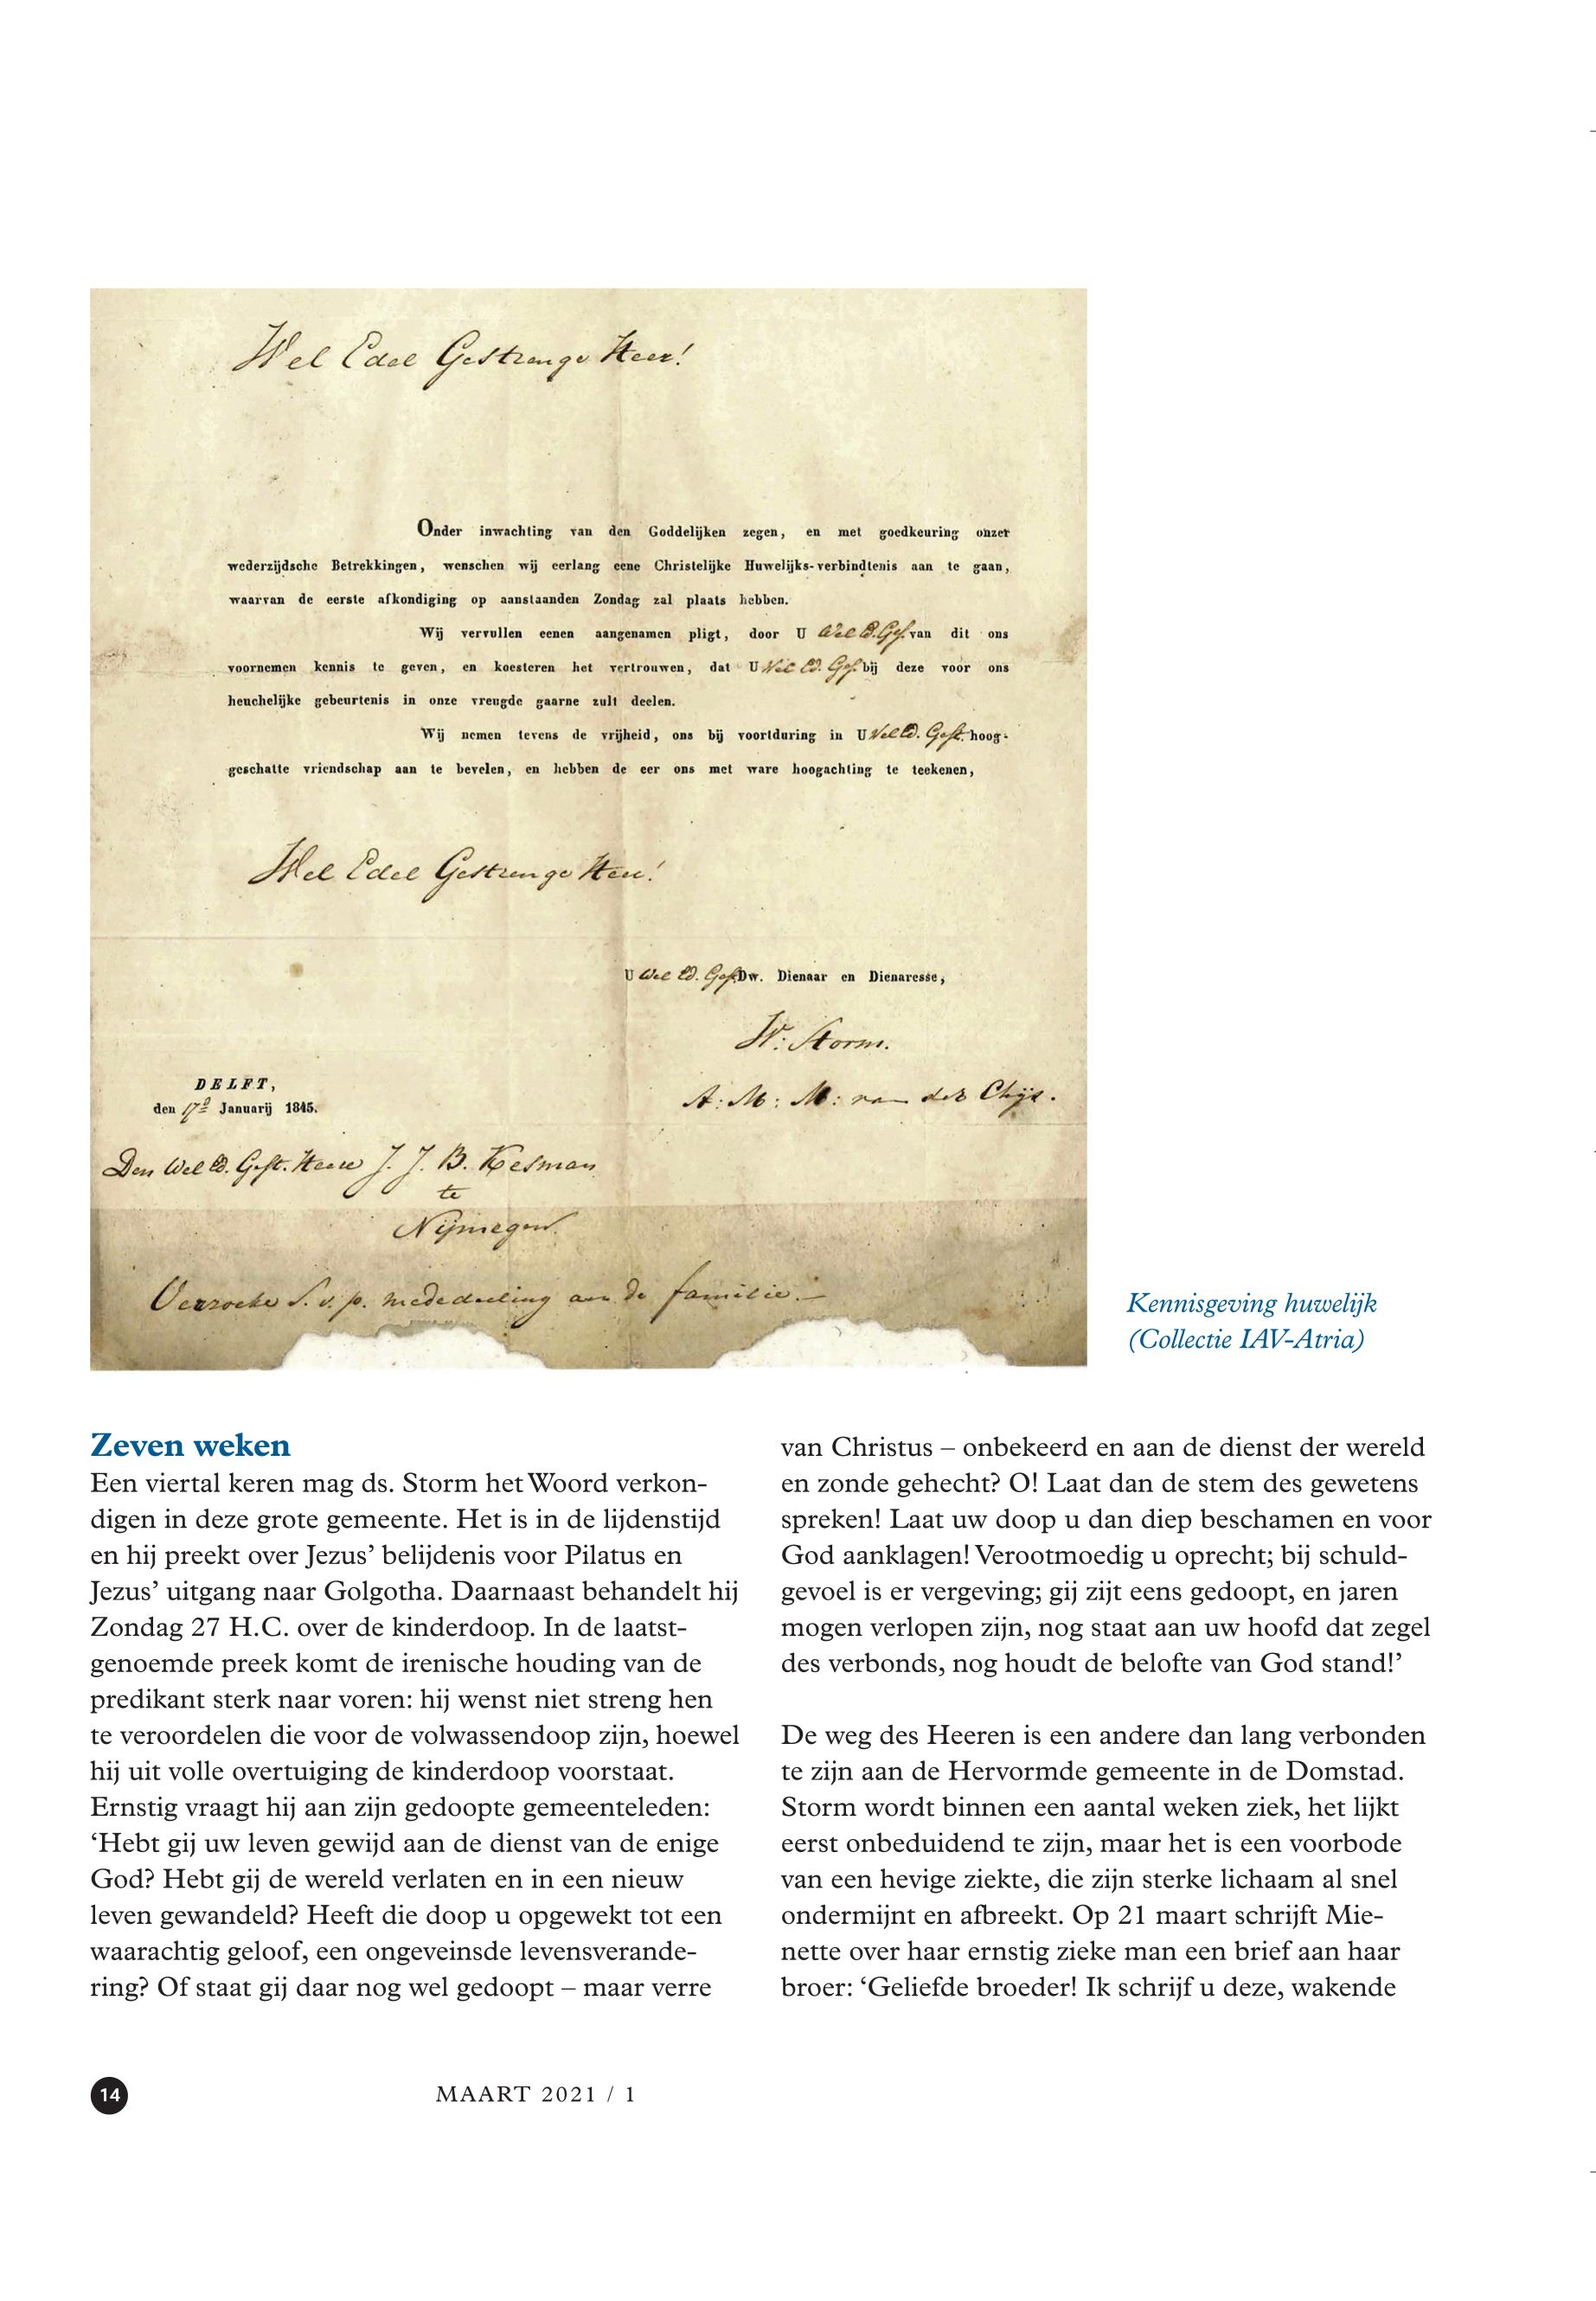 Wel Edel Gestrenge Heer!
Onder inwachting van den Goddelijken zegen, en met goedkeuring onzer
wederzijdsche Betrekkingen, wenschen wij eerlang eene Christelijke Huwelijks-verbindtenis aan te gaan,
waarvan de eerste afkondiging op aanstaanden Zondag zal plaats hebben.
Wij vervullen eenen aangenamen pligt, door U Wel Ed. Ges. van dit ons
voornemen kennis te geven, en koesteren het vertrouwen, dat U Wel Ed. Ges. bij deze voor ons
heuchelijke gebeurtenis in onze vreugde gaarne zult deelen.
Wij nemen tevens de vrijheid, ons bij voortduring in U Wel Ed. Gest. hoog-
geschatte vriendschap aan te bevelen, en hebben de eer ons met ware hoogachting te teekenen,
Wel Edel Gestrenge Heer!
U Wel Ed. Ges. Dw. Dienaar en Dienaresse,
W: Storm.
A: M: M: van der Chijs.
DELFT,
den 17e Januarij 1845.
Den Wel Ed. Gest. Heere J. J. B. Kesman
te
Nijmegen.
Verzoeke S. v. p. mededeeling aan de familie.—
Kennisgeving huwelijk
(Collectie IAV-Atria)
Zeven weken
Een viertal keren mag ds. Storm het Woord verkon-
digen in deze grote gemeente. Het is in de lijdenstijd
en hij preekt over Jezus’ belijdenis voor Pilatus en
Jezus’ uitgang naar Golgotha. Daarnaast behandelt hij
Zondag 27 H.C. over de kinderdoop. In de laatst-
genoemde preek komt de irenische houding van de
predikant sterk naar voren: hij wenst niet streng hen
te veroordelen die voor de volwassendoop zijn, hoewel
hij uit volle overtuiging de kinderdoop voorstaat.
Ernstig vraagt hij aan zijn gedoopte gemeenteleden:
‘Hebt gij uw leven gewijd aan de dienst van de enige
God? Hebt gij de wereld verlaten en in een nieuw
leven gewandeld? Heeft die doop u opgewekt tot een
waarachtig geloof, een ongeveinsde levensverande-
ring? Of staat gij daar nog wel gedoopt – maar verre
van Christus – onbekeerd en aan de dienst der wereld
en zonde gehecht? O! Laat dan de stem des gewetens
spreken! Laat uw doop u dan diep beschamen en voor
God aanklagen! Verootmoedig u oprecht; bij schuld-
gevoel is er vergeving; gij zijt eens gedoopt, en jaren
mogen verlopen zijn, nog staat aan uw hoofd dat zegel
des verbonds, nog houdt de belofte van God stand!’
De weg des Heeren is een andere dan lang verbonden
te zijn aan de Hervormde gemeente in de Domstad.
Storm wordt binnen een aantal weken ziek, het lijkt
eerst onbeduidend te zijn, maar het is een voorbode
van een hevige ziekte, die zijn sterke lichaam al snel
ondermijnt en afbreekt. Op 21 maart schrijft Mie-
nette over haar ernstig zieke man een brief aan haar
broer: ‘Geliefde broeder! Ik schrijf u deze, wakende
14
MAART 2021 / 1